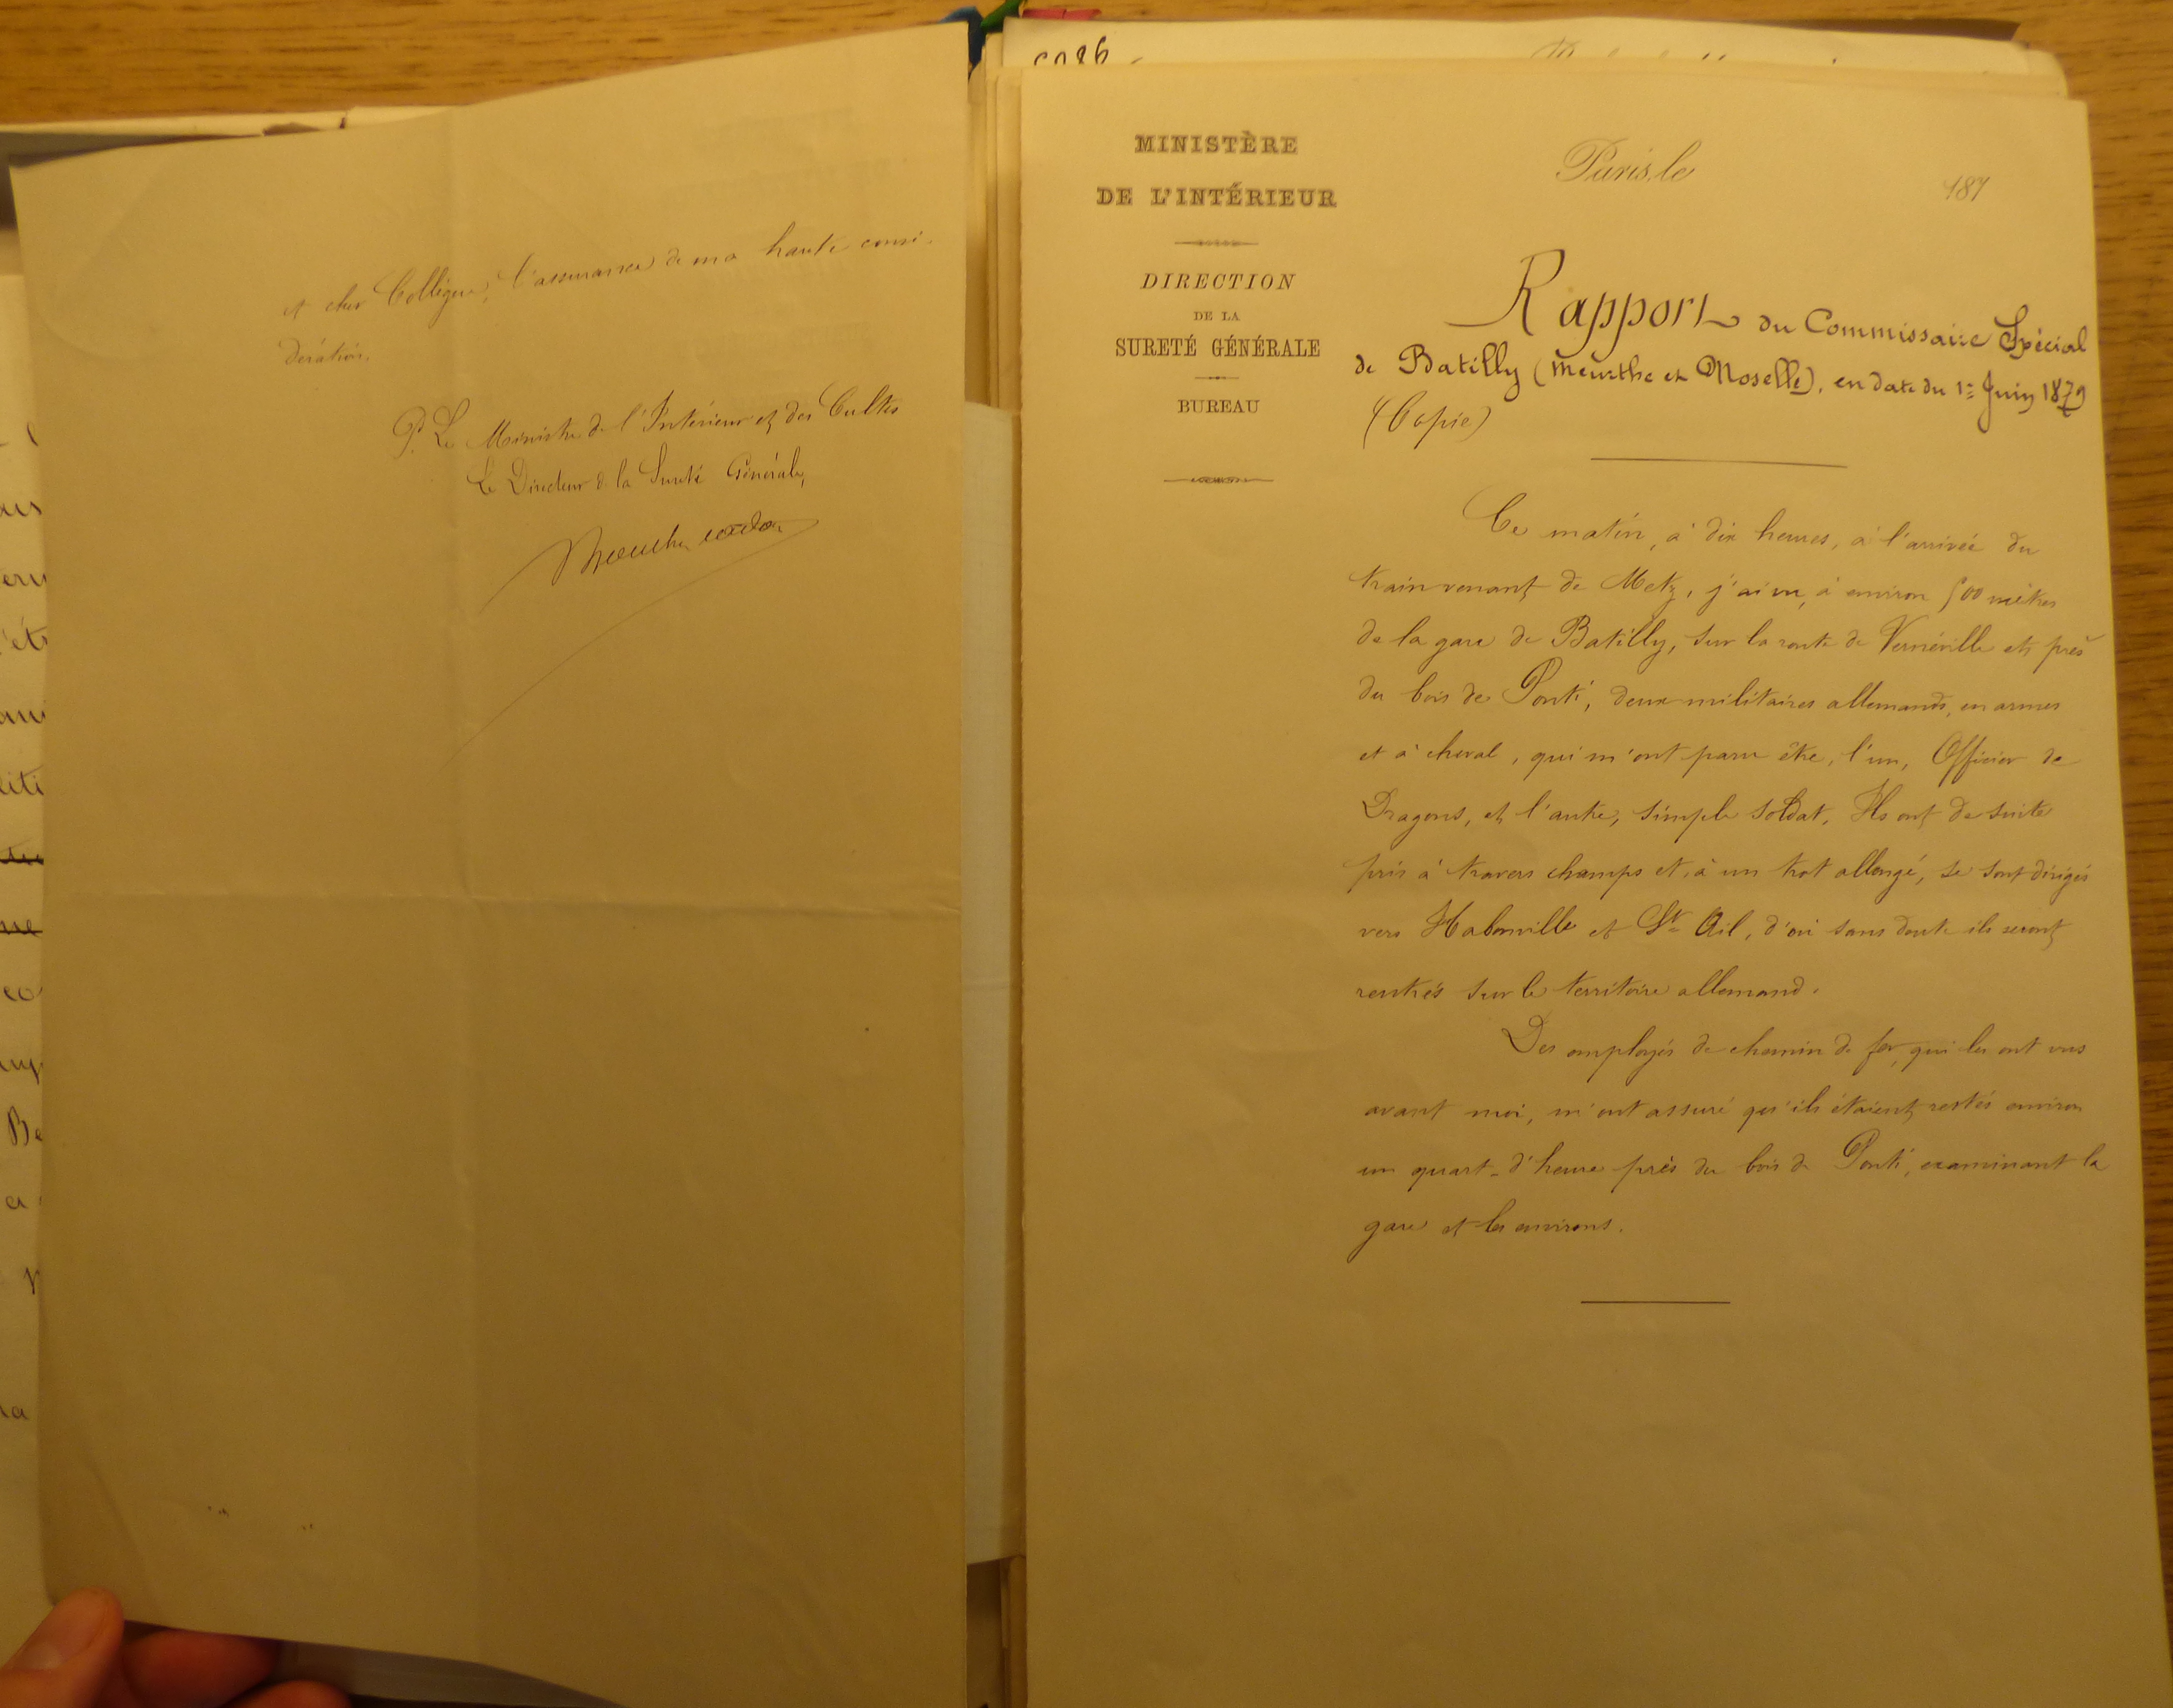 et cher Collègue, l'assurance de ma haute consi-
dération.
P. Le Ministre de l'Intérieur et des Cultes
Le Directeur de la Sureté Générale,
MINISTÈRE
DE L'INTÉRIEUR
DIRECTION
DE LA
SURETÉ GÉNÉRALE
BUREAU
Paris, le 187
Rapport du Commissaire Spécial
de Batilly (Meurthe et Moselle), en date du 1er Juin 1879
(Copie)
Ce matin, à dix heures, à l'arrivée du
train venant de Metz, j'ai vu, à environ 500 mètres
de la gare de Batilly, sur la route de Vernéville et près
du bois de Ponti, deux militaires allemands, en armes
et à cheval, qui m'ont paru être, l'un, Officier de
Dragons, et l'autre, simple soldat. Ils ont de suite
pris à travers champs et, à un trot allongé, se sont dirigés
vers Habonville et St Ail, d'où sans doute ils seront
rentrés sur le territoire allemand.
Des employés de chemin de fer, qui les ont vus
avant moi, m'ont assuré qu'ils étaient restés environ
un quart-d'heure près du bois de Ponti, examinant la
gare et les environs.